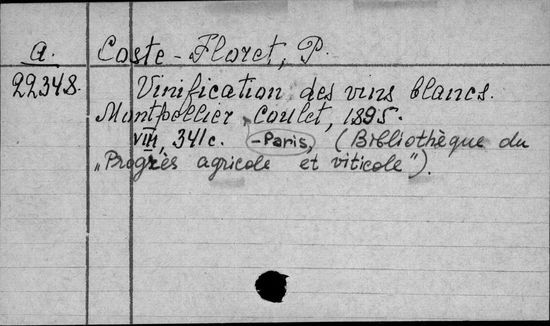 A. Coste-Floret, P.
22348. Vinification des vins blancs.
Montpellier, Coulet, 1895.
VIII, 341 c. -Paris, (Bibliothèque du
„Progrès agricole et viticole").